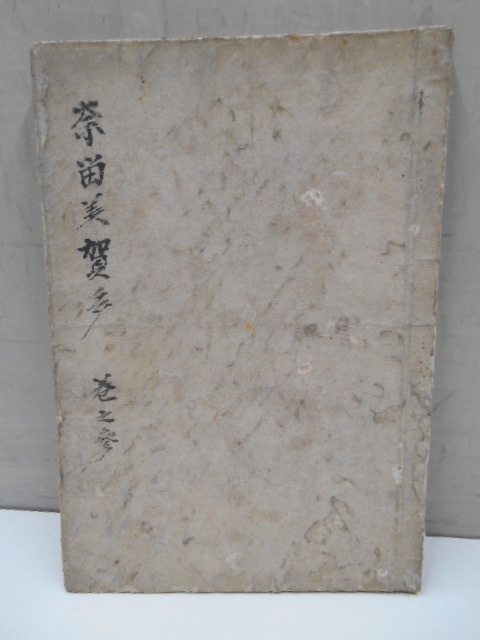 奈留美賀多 巻之参